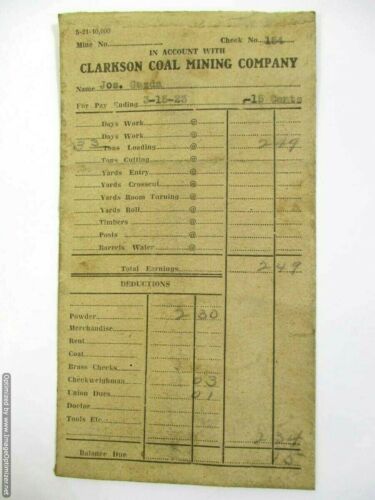 5-21-10,000
Mine No. Check No. 154
IN ACCOUNT WITH
CLARKSON COAL MINING COMPANY
Name Jos. Guzda
For Pay Ending 3-15-23 -15 Cents
Days Work @
Days Work @
33 Tons Loading @ 2 49
Tons Cutting @
Yards Entry @
Yards Crosscut @
Yards Room Turning @
Yards Roll @
Timbers @
Posts @
Barrels Water @
Total Earnings 2 49
DEDUCTIONS
Powder 2 30
Merchandise
Rent
Coal
Brass Checks
Checkweighman 03
Union Dues 01
Doctor
Tools Etc. 2 34
Balance Due 15
Optimized by www.ImageOptimizer.net